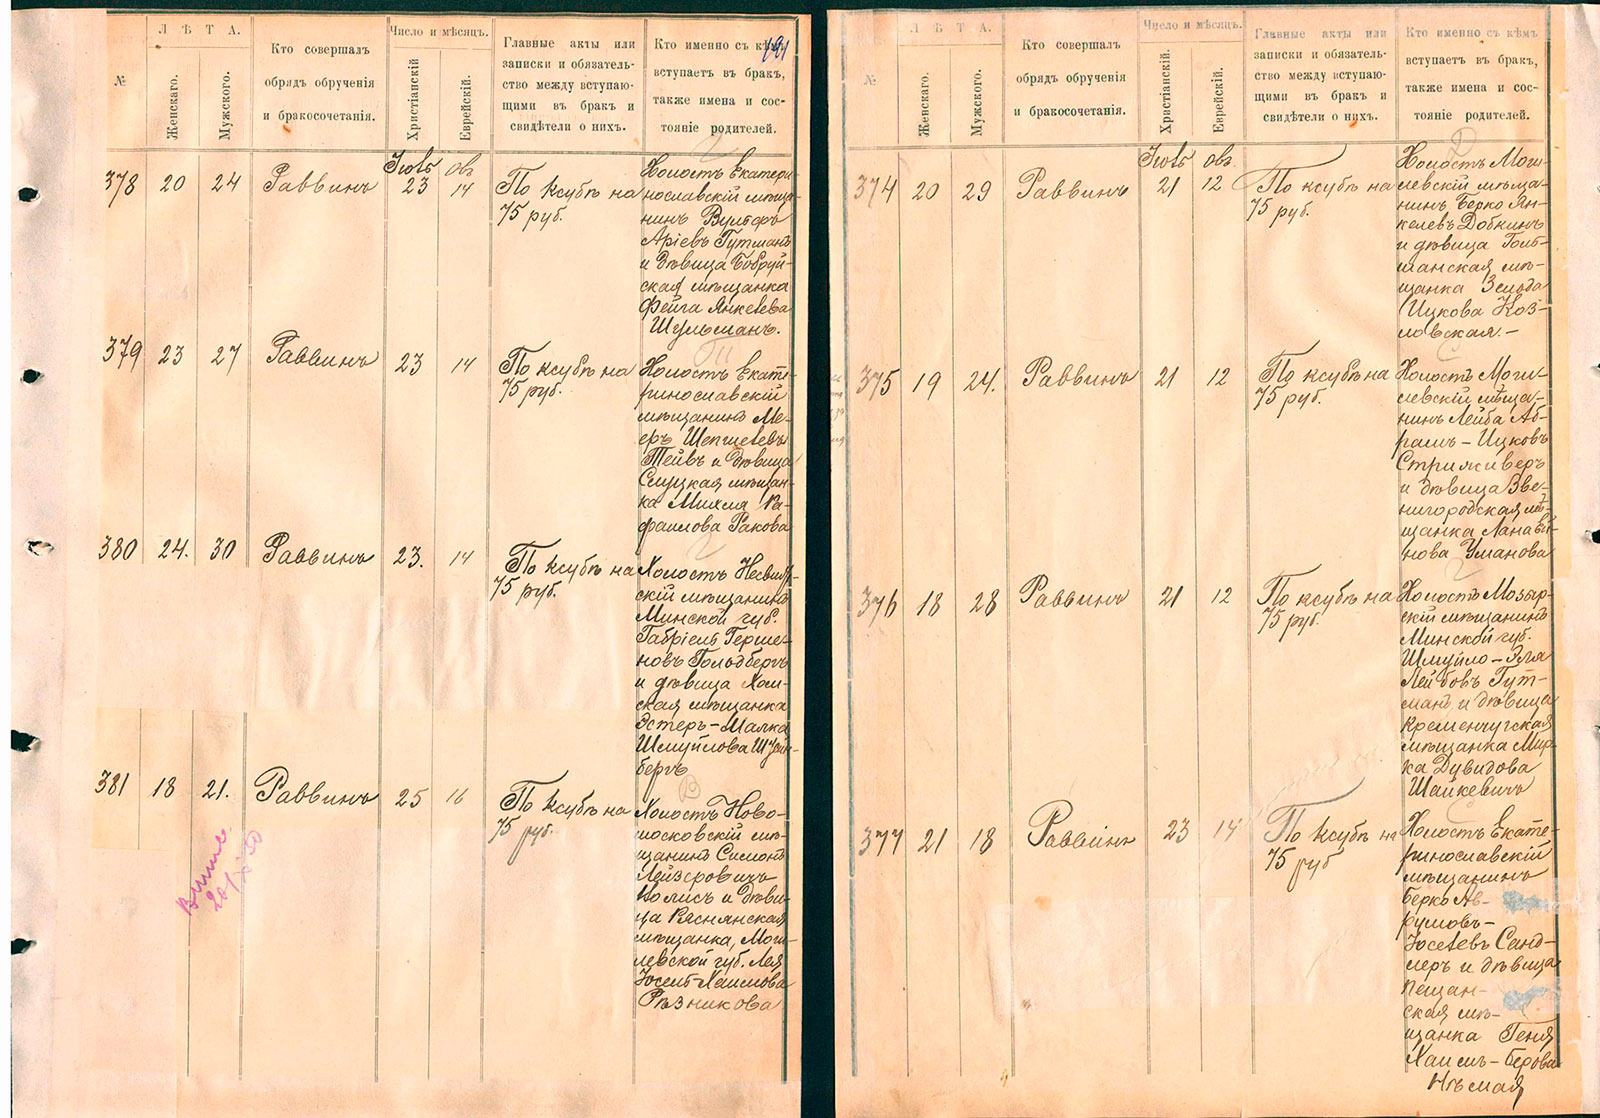 191
Л Ѣ Т А.
Число и мѣсяцъ.
№
Женскаго.
Мужского.
Кто совершалъ
обрядъ обрученія
и бракосочетанія.
Христіанскій
Еврейскій.
Главные акты или
записки и обязатель-
ство между вступаю-
щими въ бракъ и
свидѣтели о нихъ.
Кто именно съ кѣмъ
вступаетъ въ бракъ,
также имена и сос-
тояніе родителей.
378 20 24 Раввинъ Іюль 23 Овъ 14 По ксубѣ на
75 руб.
Холостъ Екатери-
нославскій мѣща-
нинъ Вульфъ
Аріевъ Гутманъ
и дѣвица Бобруй-
ская мѣщанка
Фейга Янкелева
Шульманъ.
379 23 27 Раввинъ 23 14 По ксубѣ на
75 руб.
Холостъ Екате-
ринославскій
мѣщанинъ Ме-
еръ Шепшелевъ
Тейвъ и дѣвица
Слуцкая мѣщан-
ка Михля Ра-
фаилова Ракова
380 24. 30 Раввинъ 23. 14 По ксубѣ на
75 руб.
Холостъ Несвиж-
скій мѣщанинъ
Минской губ.
Габріель Герше-
новъ Гольдбергъ
и дѣвица Хол-
ская мѣщанка
Эстеръ-Малка
Шмуйлова Штейн-
бергъ
381 18 21. Раввинъ 25 16 По ксубѣ на
75 руб.
Холостъ Ново-
московскій мѣ-
щанинъ Симонъ
Лейзеровичъ
и дѣви-
ца Ряснянская
мѣщанка, Моги-
левской губ. Лея
Іосель-Хаимова
Рѣзникова
Л Ѣ Т А.
Число и мѣсяцъ.
№
Женскаго.
Мужского.
Кто совершалъ
обрядъ обрученія
и бракосочетанія.
Христіанскій
Еврейскій.
Главные акты или
записки и обязатель-
ство между вступаю-
щими въ бракъ и
свидѣтели о нихъ.
Кто именно съ кѣмъ
вступаетъ въ бракъ,
также имена и сос-
тояніе родителей.
374 20 29 Раввинъ Іюль 21 Овъ 12 По ксубѣ на
75 руб.
Холостъ Моги-
левскій мѣща-
нинъ Берко Ян-
келевъ Добкинъ
и дѣвица Голь-
шанская мѣ-
щанка Злода
Ицкова Коз-
ловская.-
375 19 24. Раввинъ 21 12 По ксубѣ на
75 руб.
Холостъ Моги-
левскій мѣща-
нинъ Лейба Аб-
рамъ-Ицковъ
Стриживеръ
и дѣвица Зве-
нигородская мѣ-
щанка
Уманова
376 18 28 Раввинъ 21 12 По ксубѣ на
75 руб.
Холостъ Мозыр-
скій мѣщанинъ
Минской губ.
Шмуйло-Эля
Лейбовъ Гут-
манъ и дѣвица
Кременчугская
мѣщанка Мир-
ка Дувидова
Шайкевичъ
377 21 18 Раввинъ 23 14 По ксубѣ на
75 руб
Холостъ Екате-
ринославскій
мѣщанинъ
Берко Ав-
румовъ-
Іоселевъ Санд-
леръ и дѣвица
Пещан-
ская мѣ-
щанка Геня
Хаимъ-Берова
Нѣмая